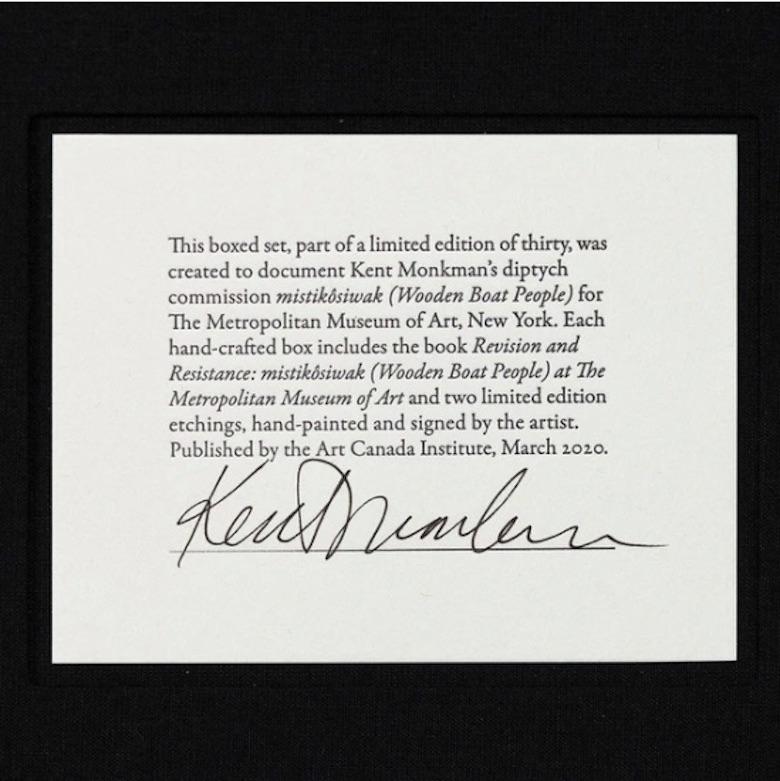 This boxed set, part of a limited edition of thirty, was
created to document Kent Monkman’s diptych
commission mistikôsiwak (Wooden Boat People) for
The Metropolitan Museum of Art, New York. Each
hand-crafted box includes the book Revision and
Resistance: mistikôsiwak (Wooden Boat People) at The
Metropolitan Museum of Art and two limited edition
etchings, hand-painted and signed by the artist.
Published by the Art Canada Institute, March 2020.
Kent Monkman